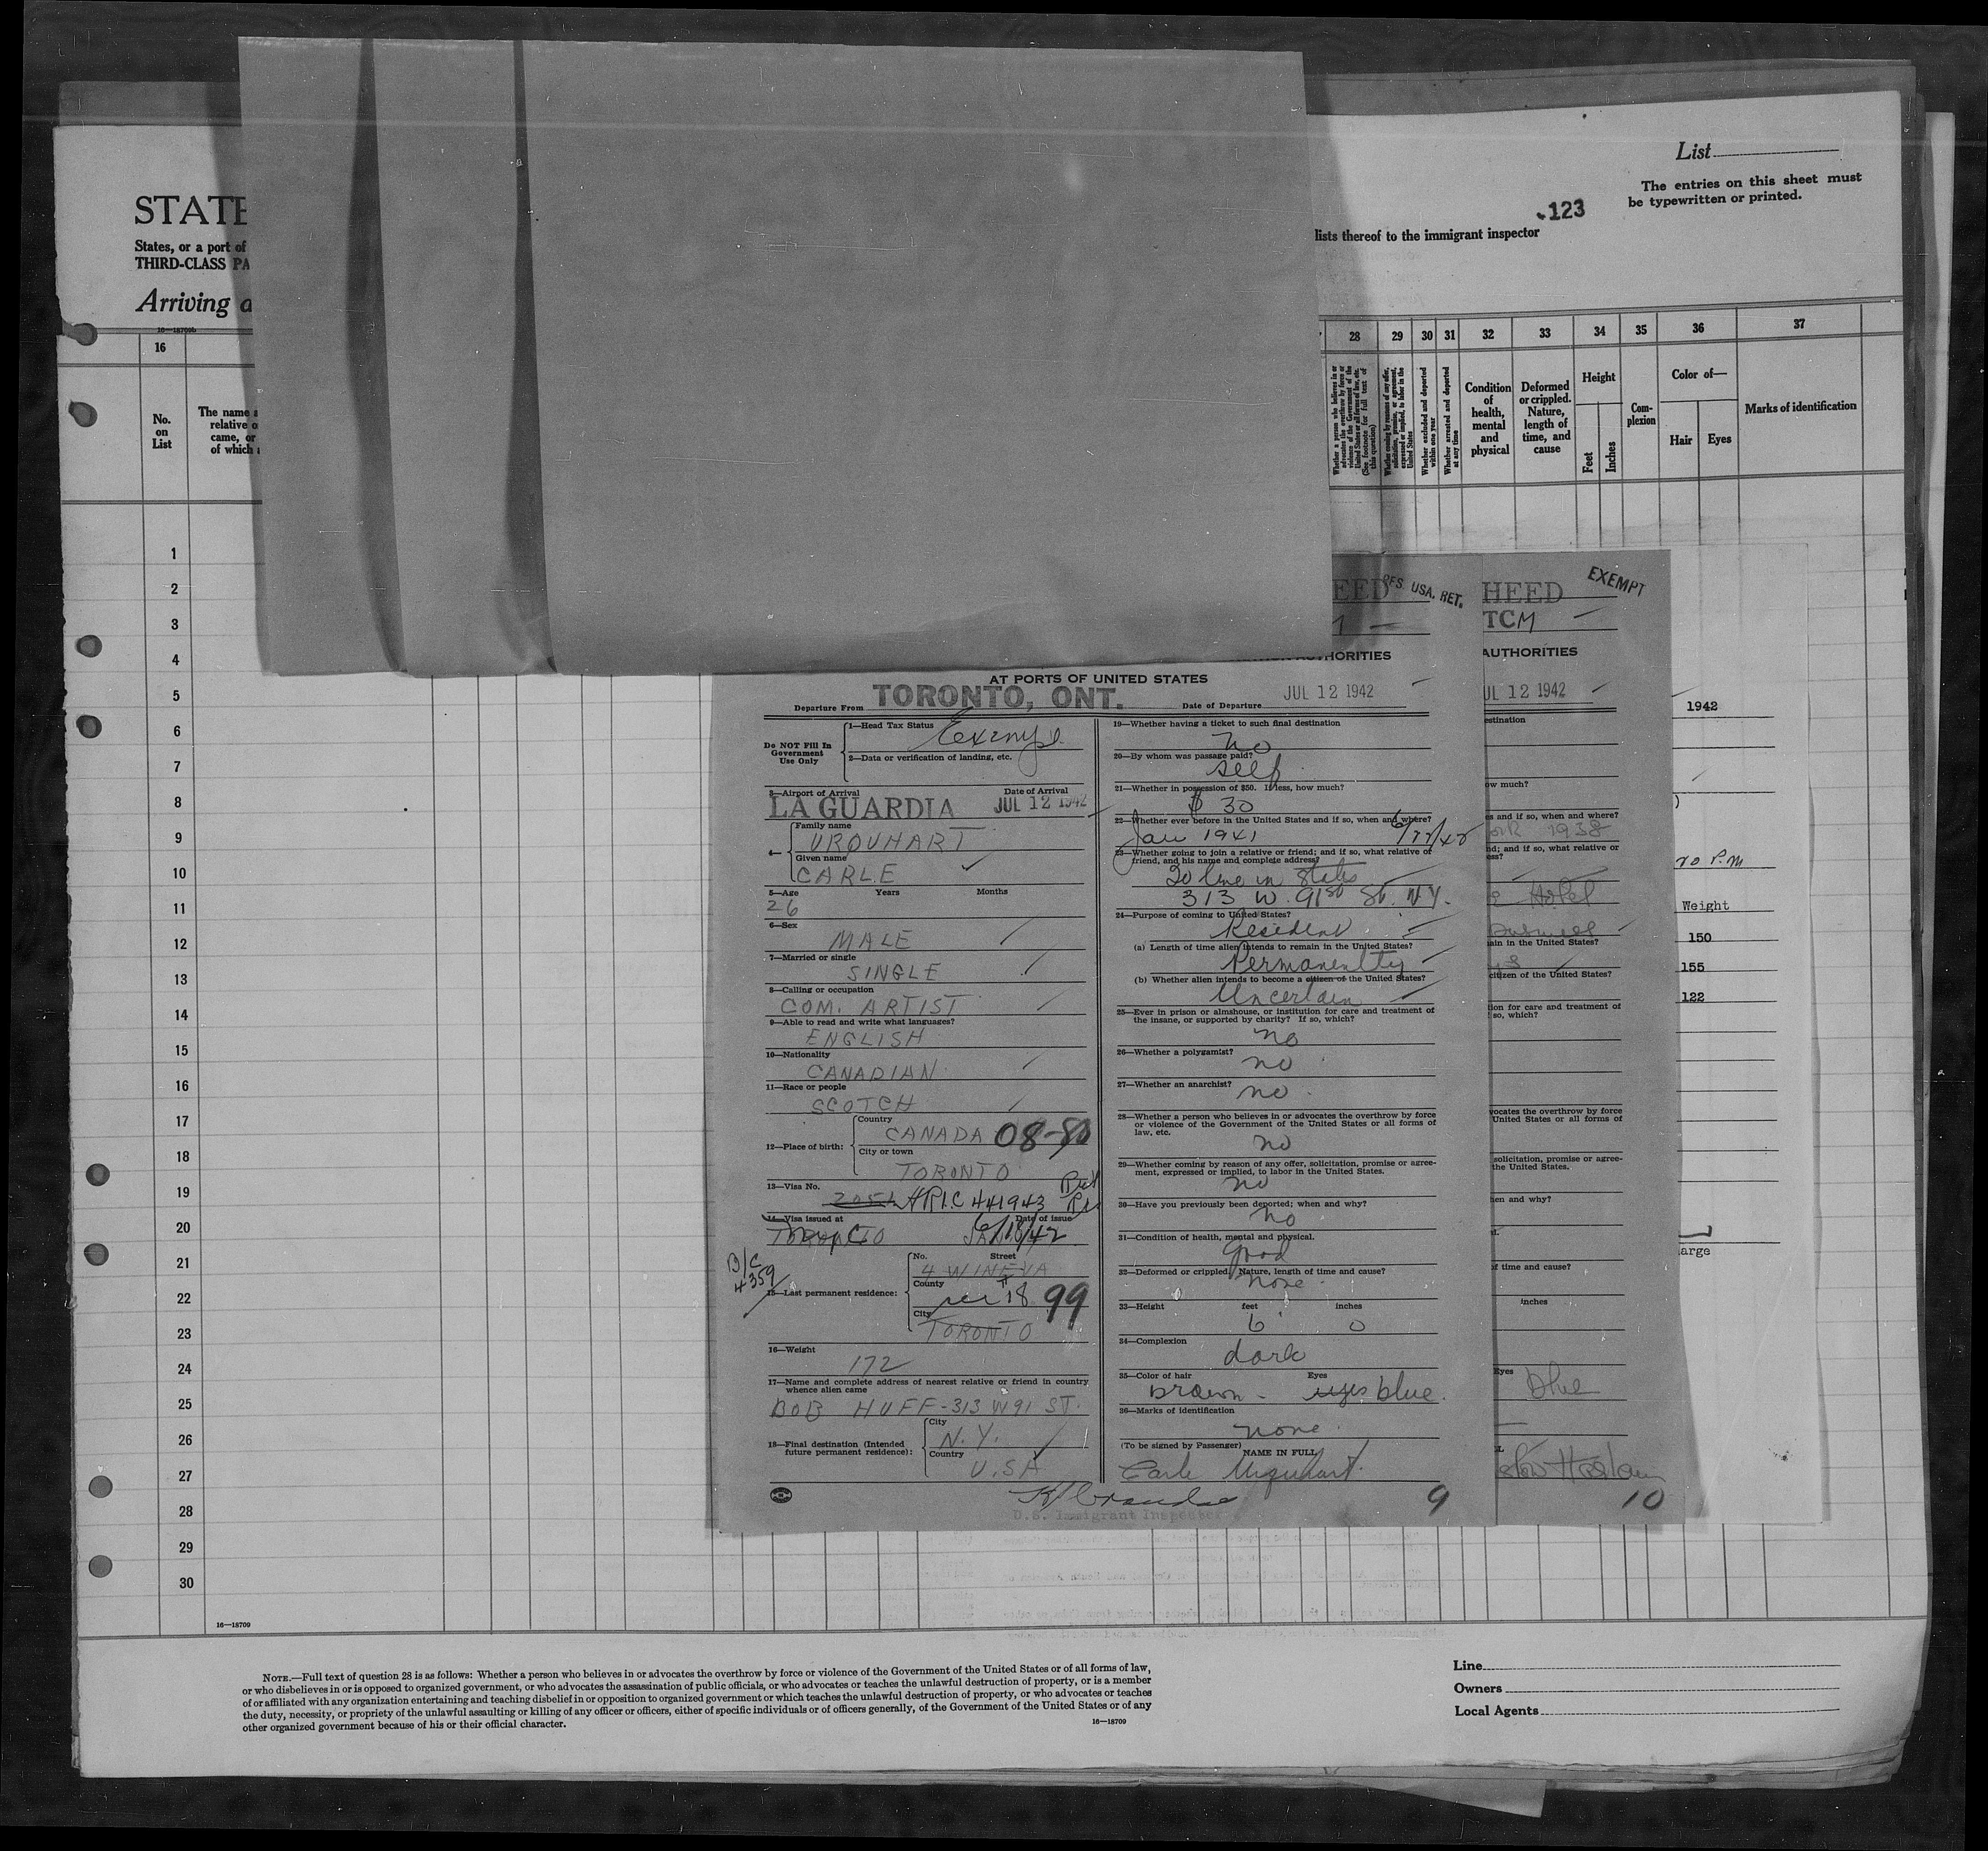 List
The entries on this sheet must
be typewritten or printed.
123
STATE
States, or a port of
THIRD-CLASS PA
lists thereof to the immigrant inspector
Arriving a
16—18709b
16
28 29 30 31 32 33 34 35 36 37
No.
on
List
The name a
relative o
came, or
of which
Whether a person who believes in or
advocates the overthrow by force or
violence of the Government of the
United States or all forms of law, etc.
(See footnote for full text of
this question)
Whether coming by reason of any offer,
solicitation, promise, or agreement,
expressed or implied, to labor in the
United States
Whether excluded and deported
within one year
Whether arrested and deported
at any time
Condition
of
health,
mental
and
physical
Deformed
or crippled.
Nature,
length of
time, and
cause
Height
Feet
Inches
Com-
plexion
Color of—
Hair
Eyes
Marks of identification
1
2
3
4
5
6
7
8
9
10
11
12
13
14
15
16
17
18
19
20
21
22
23
24
25
26
27
28
29
30
16—18709
EED
USA. RET.
HORITIES
AT PORTS OF UNITED STATES
Departure From TORONTO, ONT.
Date of Departure JUL 12 1942
Do NOT Fill In
Government
Use Only
1—Head Tax Status
Exempt
2—Data or verification of landing, etc.
3—Airport of Arrival Date of Arrival
LA GUARDIA JUL 12 1942
4—
Family name
URQUHART
Given name
CARLE
5—Age Years Months
26
6—Sex
MALE
7—Married or single
SINGLE
8—Calling or occupation
COM. ARTIST
9—Able to read and write what languages?
ENGLISH
10—Nationality
CANADIAN
11—Race or people
SCOTCH
12—Place of birth:
Country
CANADA 08-80
City or town
TORONTO
13—Visa No.
2054 ARIC 441943
14—Visa issued at Date of issue
TORONTO 6/18/42
B/C
4359
15—Last permanent residence:
No. Street
4 WINEVA
County
18 99
City
TORONTO
16—Weight
172
17—Name and complete address of nearest relative or friend in country
whence alien came
BOB HUFF-313 W 91 ST.
18—Final destination (Intended
future permanent residence):
City
N.Y.
Country
U.S.A
U.S. Immigrant Inspector
19—Whether having a ticket to such final destination
no
20—By whom was passage paid?
self
21—Whether in possession of $50. If less, how much?
$ 30
22—Whether ever before in the United States and if so, when and where?
Jan 1941
23—Whether going to join a relative or friend; and if so, what relative or
friend, and his name and complete address?
To live in States
313 W. 91st St. N.Y.
24—Purpose of coming to United States?
Resident
(a) Length of time alien intends to remain in the United States?
Permanently
(b) Whether alien intends to become a citizen of the United States?
Uncertain
25—Ever in prison or almshouse, or institution for care and treatment of
the insane, or supported by charity? If so, which?
no
26—Whether a polygamist?
no
27—Whether an anarchist?
no
28—Whether a person who believes in or advocates the overthrow by force
or violence of the Government of the United States or all forms of
law, etc.
no
29—Whether coming by reason of any offer, solicitation, promise or agree-
ment, expressed or implied, to labor in the United States.
no
30—Have you previously been deported; when and why?
no
31—Condition of health, mental and physical.
Good
32—Deformed or crippled. Nature, length of time and cause?
none
33—Height feet inches
6 0
34—Complexion
dark
35—Color of hair Eyes
brown - blue.
36—Marks of identification
none
(To be signed by Passenger)
NAME IN FULL
Carle Urquhart.
9
HEED
EXEMPT
TCM
AUTHORITIES
UL 12 1942
estination
ow much?
es and if so, when and where?
ORK 1938
nd; and if so, what relative or
ess?
Hotel
Business
ain in the United States?
citizen of the United States?
ion for care and treatment of
so, which?
vocates the overthrow by force
United States or all forms of
solicitation, promise or agree-
the United States.
en and why?
of time and cause?
inches
Eyes
Blue
10
1942
P.M
Weight
150
155
122
arge
NOTE.—Full text of question 28 is as follows: Whether a person who believes in or advocates the overthrow by force or violence of the Government of the United States or of all forms of law,
or who disbelieves in or is opposed to organized government, or who advocates the assassination of public officials, or who advocates or teaches the unlawful destruction of property, or is a member
of or affiliated with any organization entertaining and teaching disbelief in or opposition to organized government or which teaches the unlawful destruction of property, or who advocates or teaches
the duty, necessity, or propriety of the unlawful assaulting or killing of any officer or officers, either of specific individuals or of officers generally, of the Government of the United States or of any
other organized government because of his or their official character.
16—18709
Line
Owners
Local Agents